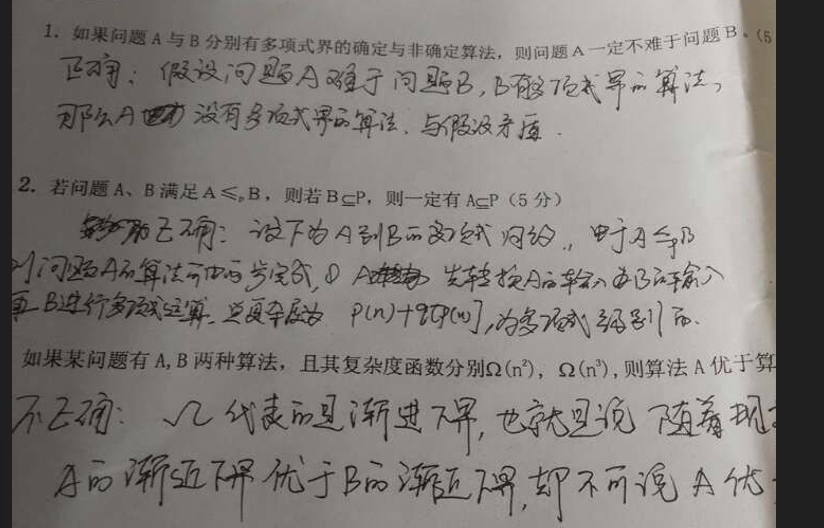 1. 如果问题 A 与 B 分别有多项式界的确定与非确定算法，则问题 A 一定不难于问题 B。(5
正确：假设问题A难于问题B，B有多项式界的算法，
那么A 没有多项式界的算法，与假设矛盾．
2. 若问题 A、B 满足 A≤ₚB，则若 B⊆P，则一定有 A⊆P（5 分）
正确：设f为A到B的多项式归约，由于A≤ₚB
则问题A的算法可由两步完成，① 先转换A的输入为B的输入
再B进行多项式运算，总复杂度为 P(n)+q[P(n)]，为多项式级别的．
如果某问题有 A, B 两种算法，且其复杂度函数分别Ω(n²)，Ω(n³)，则算法 A 优于算
不正确：Ω代表的是渐进下界，也就是说 随着规
A的渐近下界优于B的渐近下界，却不可说A优